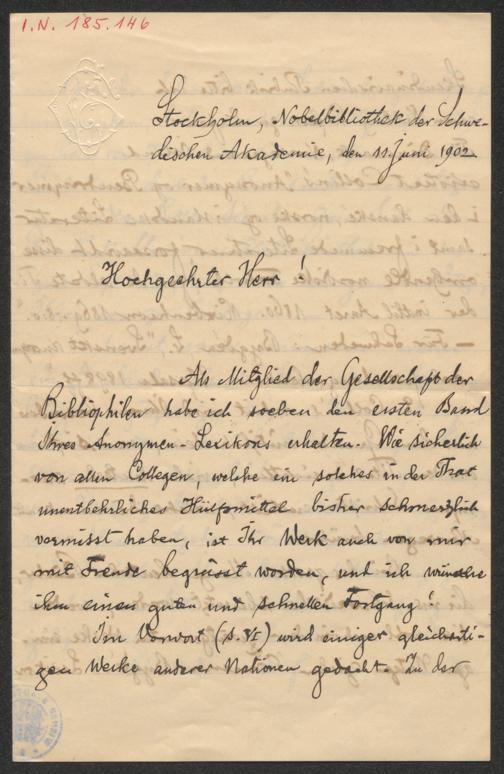 I.N. 185.146
Stockholm, Nobelbibliothek der Schwe-
dischen Akademie, den 11. Juni 1902
Hochgeehrter Herr!
Als Mitglied der Gesellschaft der
Bibliophilen habe ich soeben den ersten Band
Ihres Anonymen-Lexikons erhalten. Wie sicherlich
von allen Collegen, welche ein solches in der That
unentbehrliches Hülfsmittel bisher schmerzlich
vermisst haben, ist Ihr Werk auch von mir
mit Freude begrüsst worden, und ich wünsche
ihm einen guten und schnellen Fortgang!
Im Vorwort (s. VI) wird einiger gleichzeiti-
gen Werke anderer Nationen gedacht. Zu der